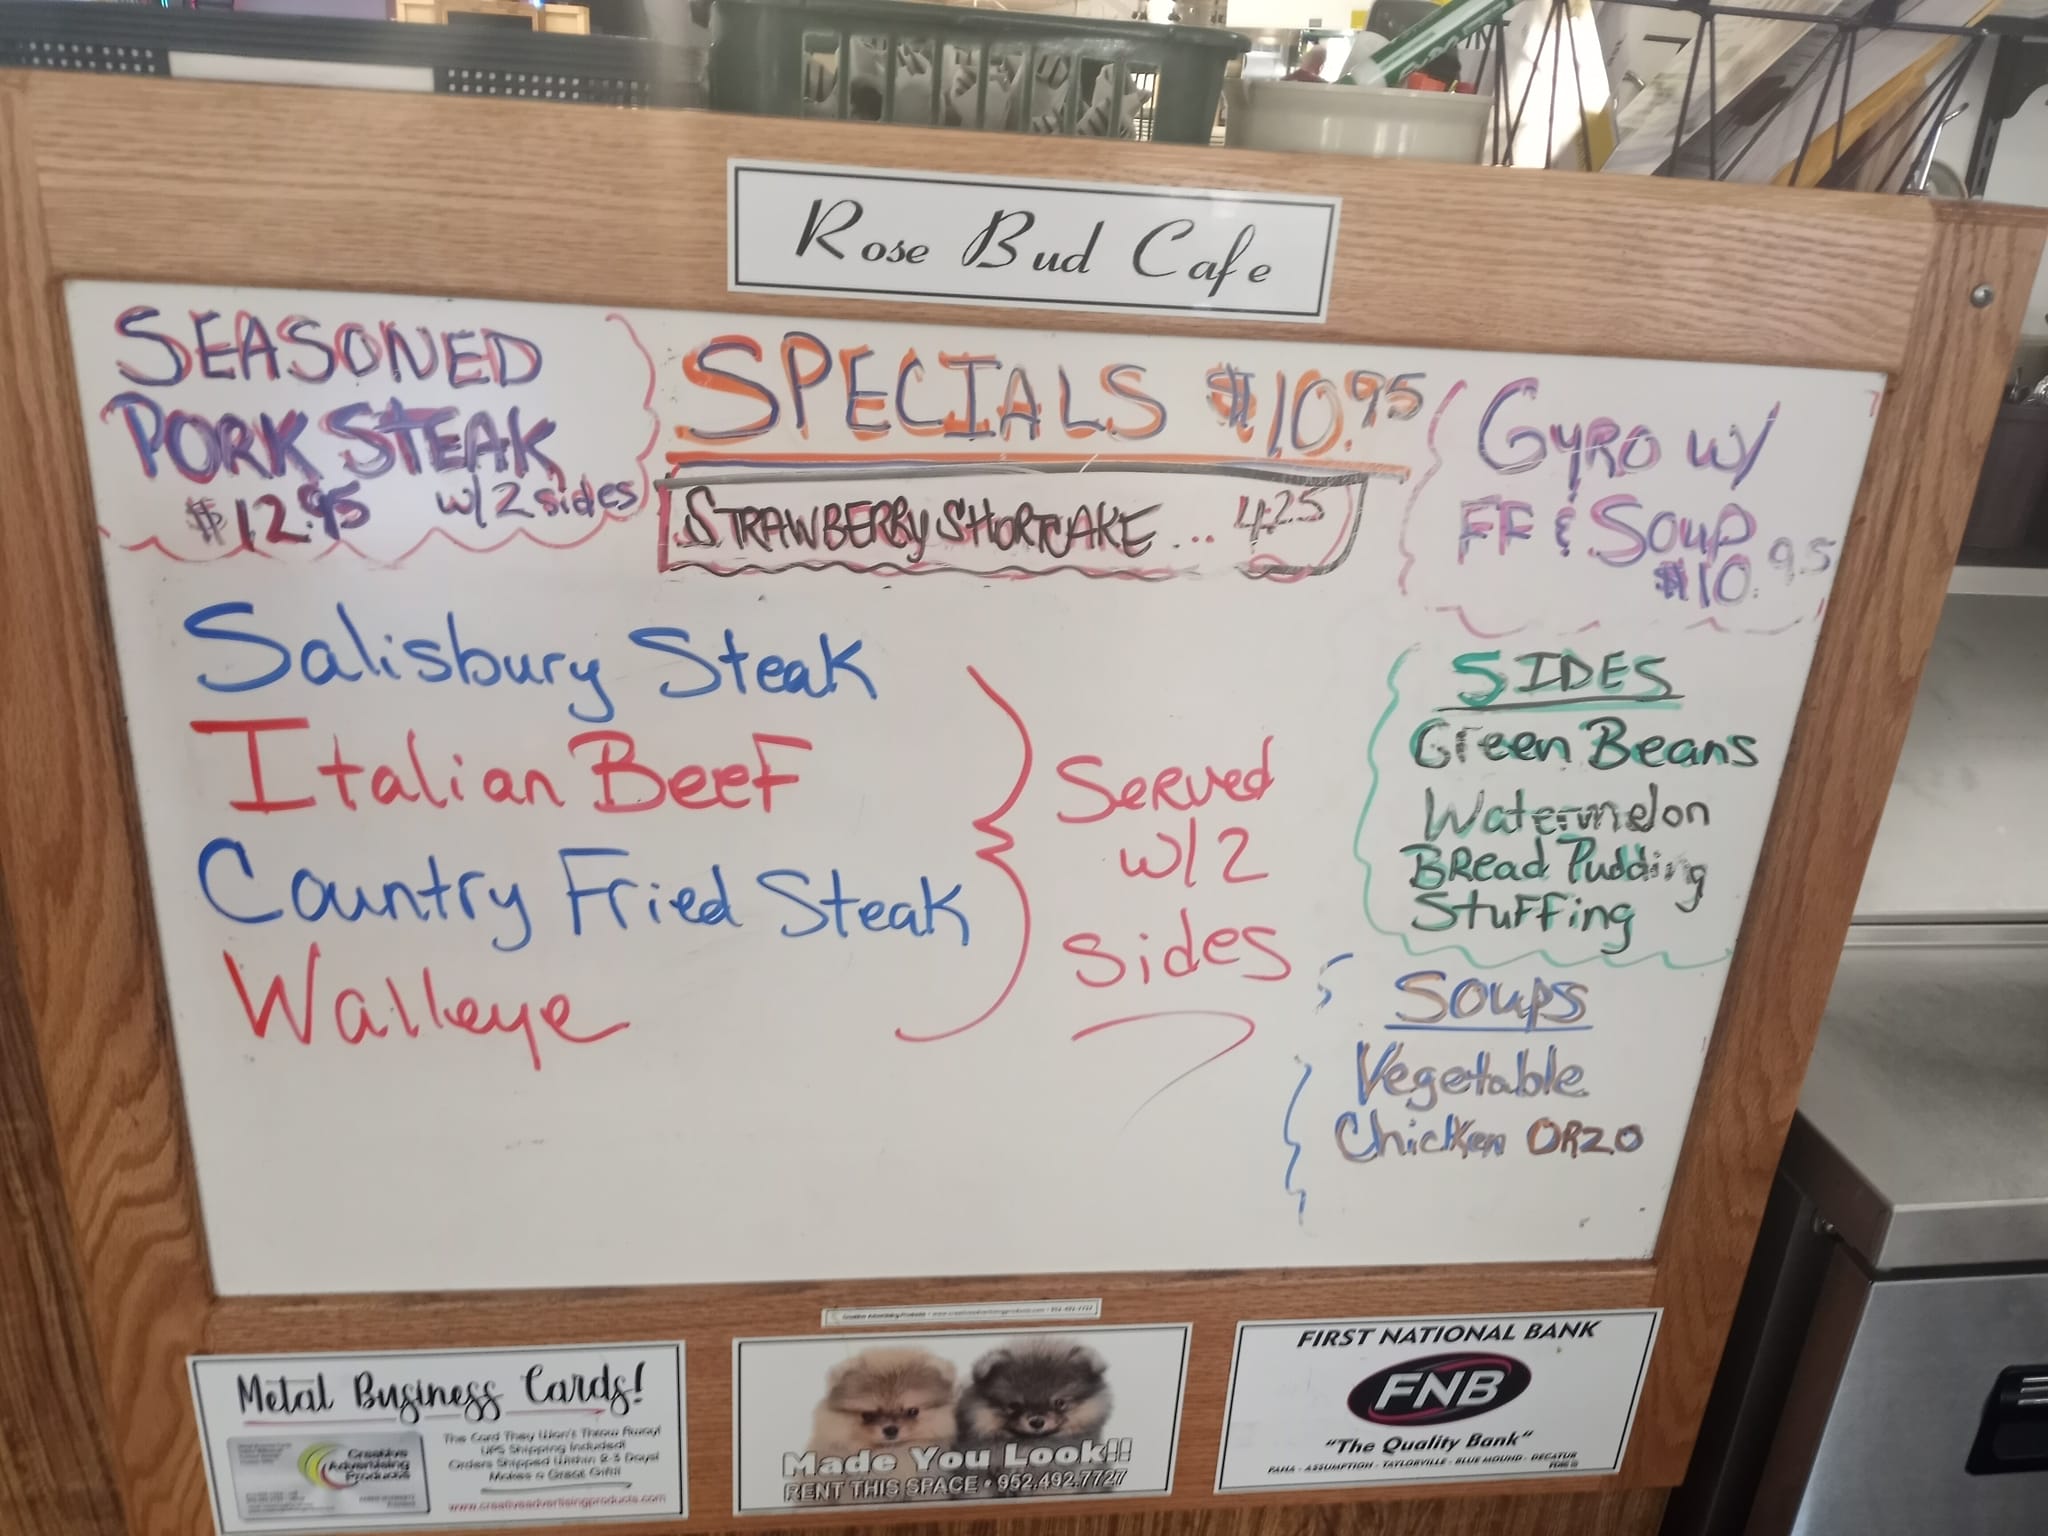 Rose Bud Cafe
SEASONED
PORK STEAK
$12.95 w/2 sides
SPECIALS $10.95
STRAWBERRY SHORTCAKE ... 4.25
GYRO w/
FF & Soup
$10.95
Salisbury Steak
Italian Beef
Country Fried Steak
Walleye
Served
w/2
sides
SIDES
Green Beans
Watermelon
Bread Pudding
Stuffing
Soups
Vegetable
Chicken ORZO
Metal Business Cards!
The Card They Won't Throw Away!
UPS Shipping Included!
Orders Shipped Within 2-3 Days!
Makes a Great Gift!
Creative
Advertising
Products
www.creativeadvertisingproducts.com
Creative Advertising Products • www.creativeadvertisingproducts.com • 952-492-7727
Made You Look!!
RENT THIS SPACE • 952.492.7727
FIRST NATIONAL BANK
FNB
"The Quality Bank"
PANA - ASSUMPTION - TAYLORVILLE - BLUE MOUND - DECATUR